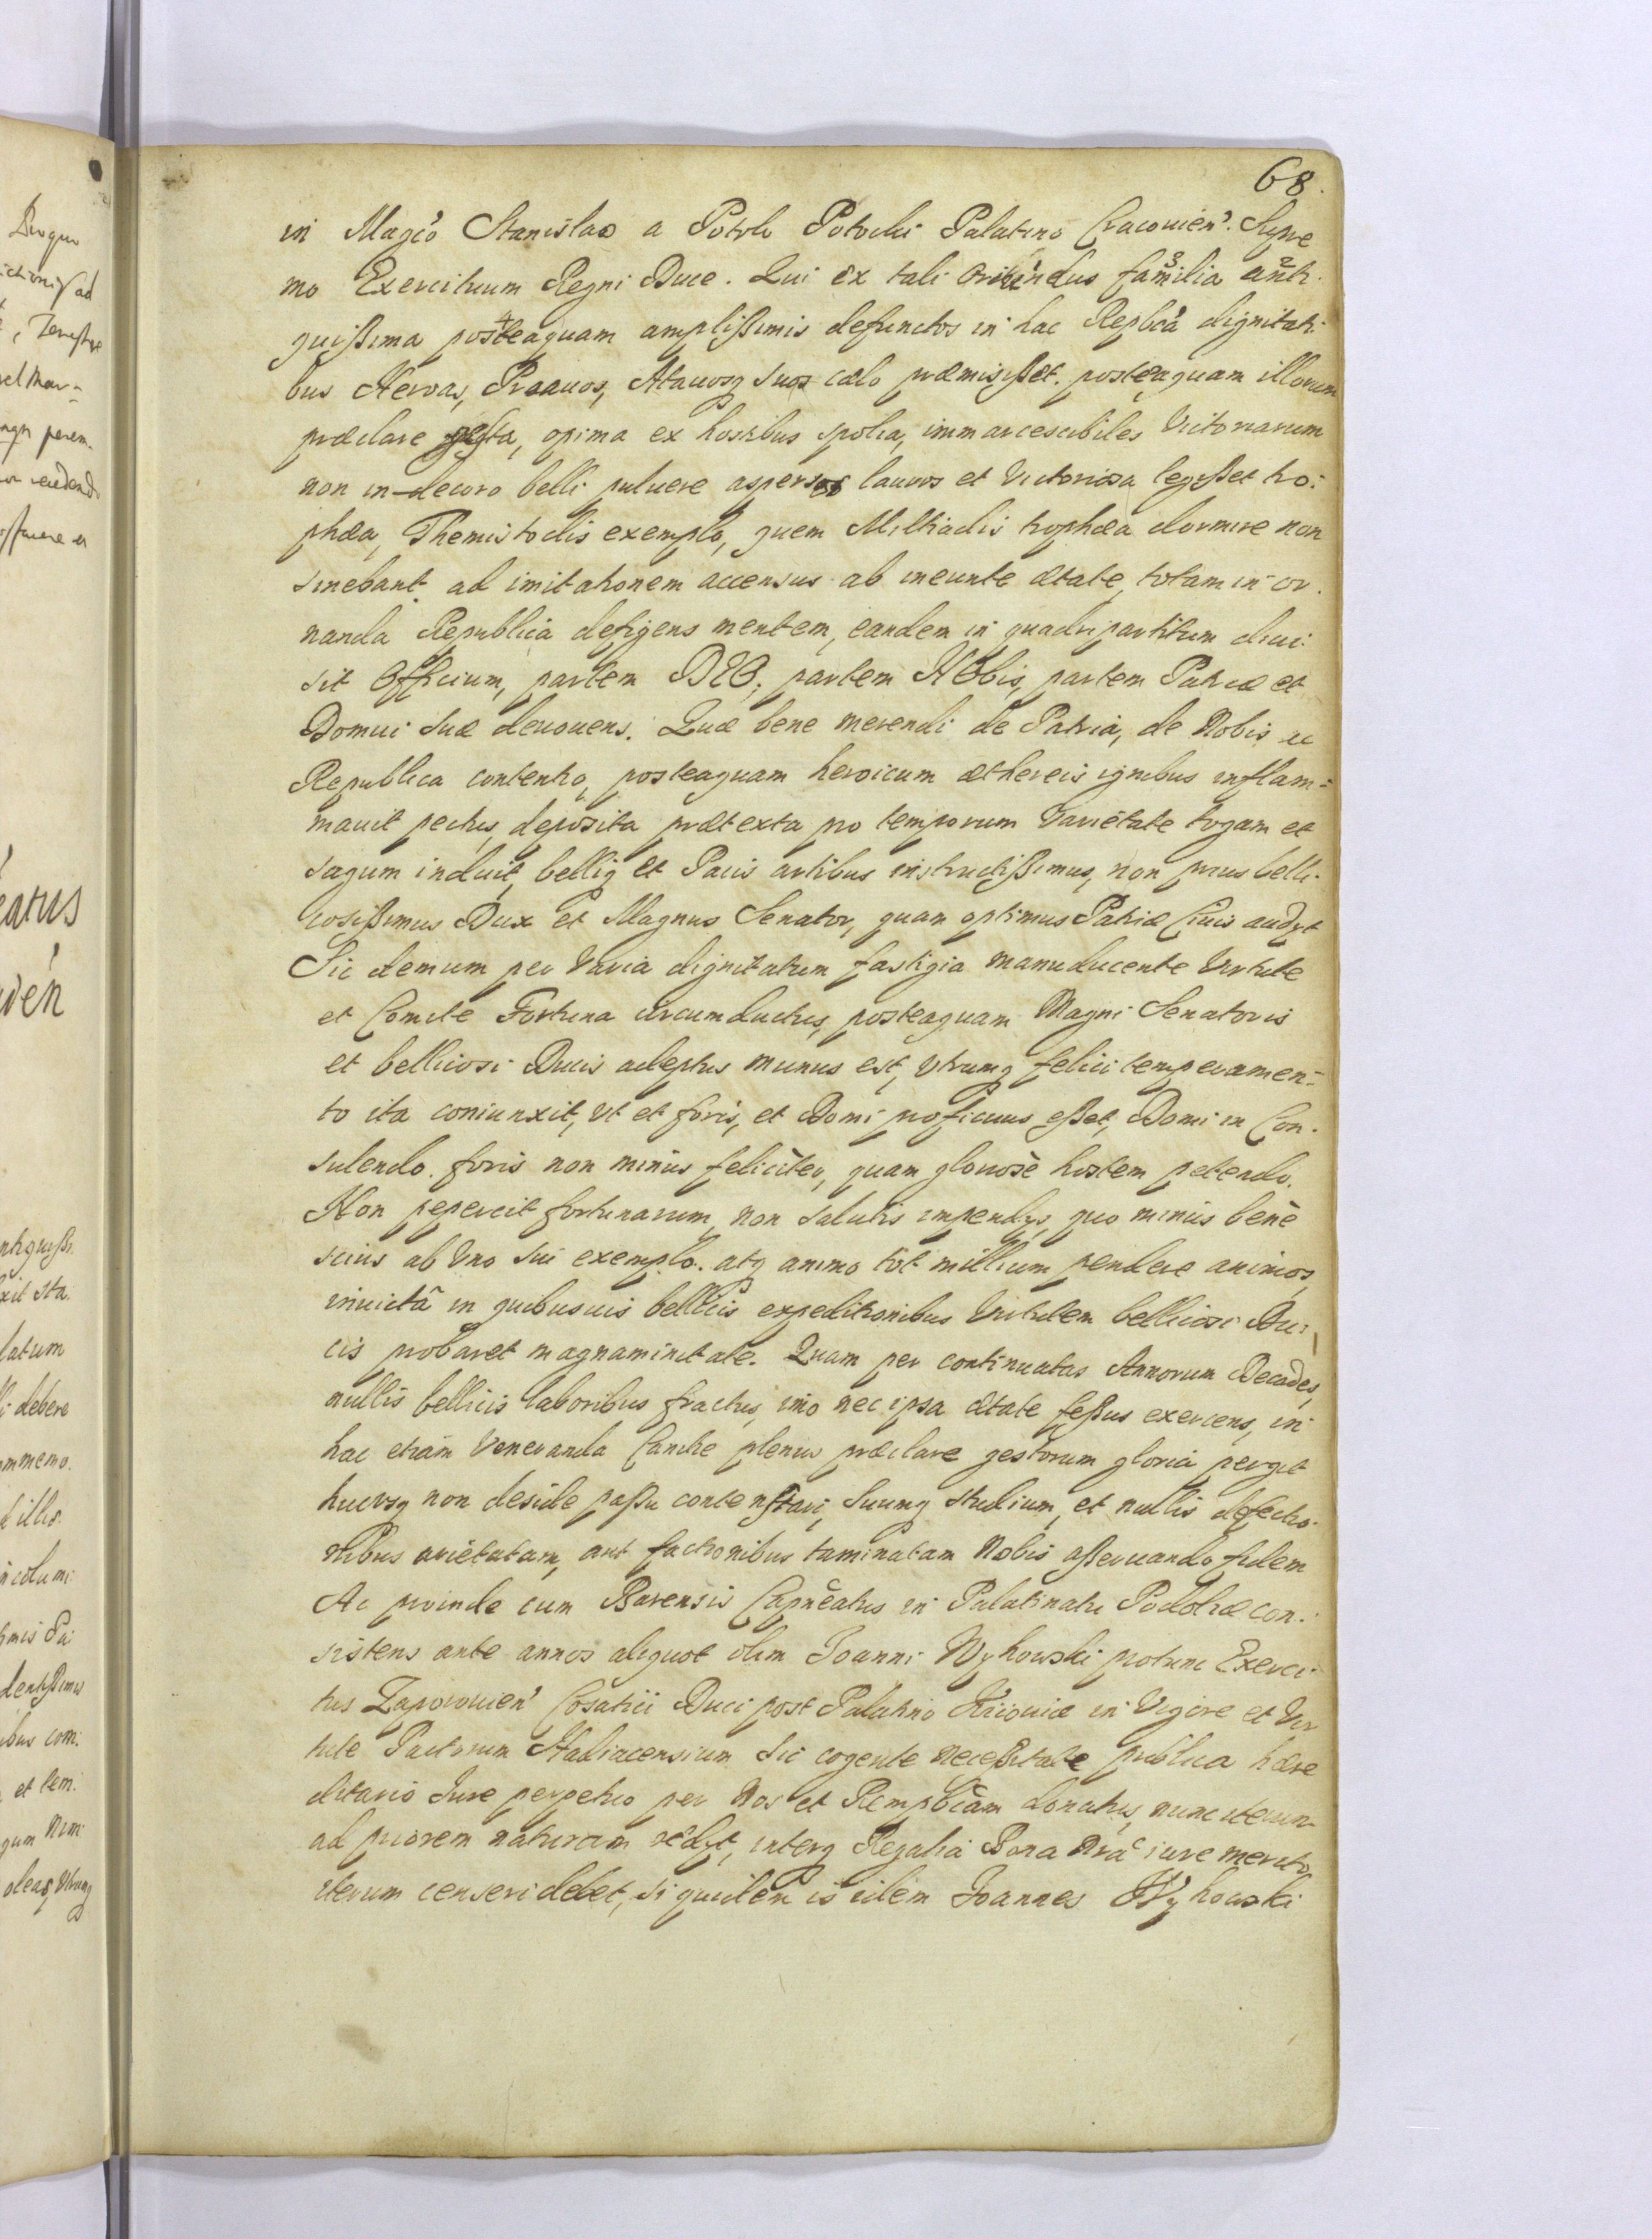 68.
in Magco Stanislao a Potok Potocki Palatino Cracouien. Supre
mo Exercituum Regni Duce. Qui ex tali oriundus familia anti.
quißima posteaquam amplißimis defunctos in hac Repbca dignitati.
bus Heroas, Proauos, Atauosq suos cælo præmisißet. posteaquam illorum
præclare gesta, opima ex hostibus spolia, immarcescibiles Victoriarum
non in-decoro belli puluere aspersos lauros et Victoriosa legißet tro:
phæa, Themistoclis exemplo, quem Miltiadis trophæa dormire non
sinebant. ad imitationem accensus ab ineunte ætate, totam in or.
nanda Republica defigens mentem, eandem in quadripartitum diui:
sit Officium, partem DEO, partem NObis, partem Patriæ et
Domui suæ deuouens. Quæ bene merendi de Patria, de Nobis ac
Republica contentio, posteaquam heroicum æthereis ignibus inflam=
mauit pectus, deposita prætexta pro temporum Varietate togam et
sagum induit, belliq et Pacis artibus instructißimus, non prius belli.
cosißimus Dux et Magnus Senator, quam optimus Patriæ Ciuis audyt
Sic demum per Varia dignitatum fastigia manuducente Virtute
et Comite Fortuna circumductus, posteaquam Magni Senatoris
et bellicosi Ducis adeptus munus est, Vtrumq felici temperamen=
to ita coniunxit, vt et foris, et Domi proficuus eßet, Domi in Con.
sulendo. foris non minus feliciter, quam gloriosè hostem petendo.
Non pepercit fortunarum, non salutis impendys, quo minus benè
scius ab Vno sui exemplo. atq animo tot millium pendere animos,
inuictâ in quibusuis bellicis expeditionibus Virtutem bellicosi Du:
cis probaret magnaminitate. Quam per continuatas Annorum Decades,
nullis bellicis laboribus fractus, imo nec ipsa ætate feßus exercens, in
hac etiam Veneranda Canitie plenus præclare gestorum gloria pergit
hucusq non deside paßu contestari, suumq studium, et nullis defectio.
nibus arietatam, aut factionibus taminatam Nobis aßeruando fidem
Ac proinde cum Barensis Capneatus in Palatinatu Podoliæ con.
sistens ante annos aliquot olim Joanni Wyhowski protunc Exerci
tus Zaporouien Cosatici Duci post Palatino Kiiouiæ in Vigore et Vir
tute Pactorum Hadiacensium sic cogente neceßitate publica hære
ditario Iure perpetuo per Nos et Rempbcam donatus, nunc iterum
ad priorem naturam redyt, interq Regalia Bona Nra iure merito
iterum censeri debet, si quidem is idem Joannes Wyhowski